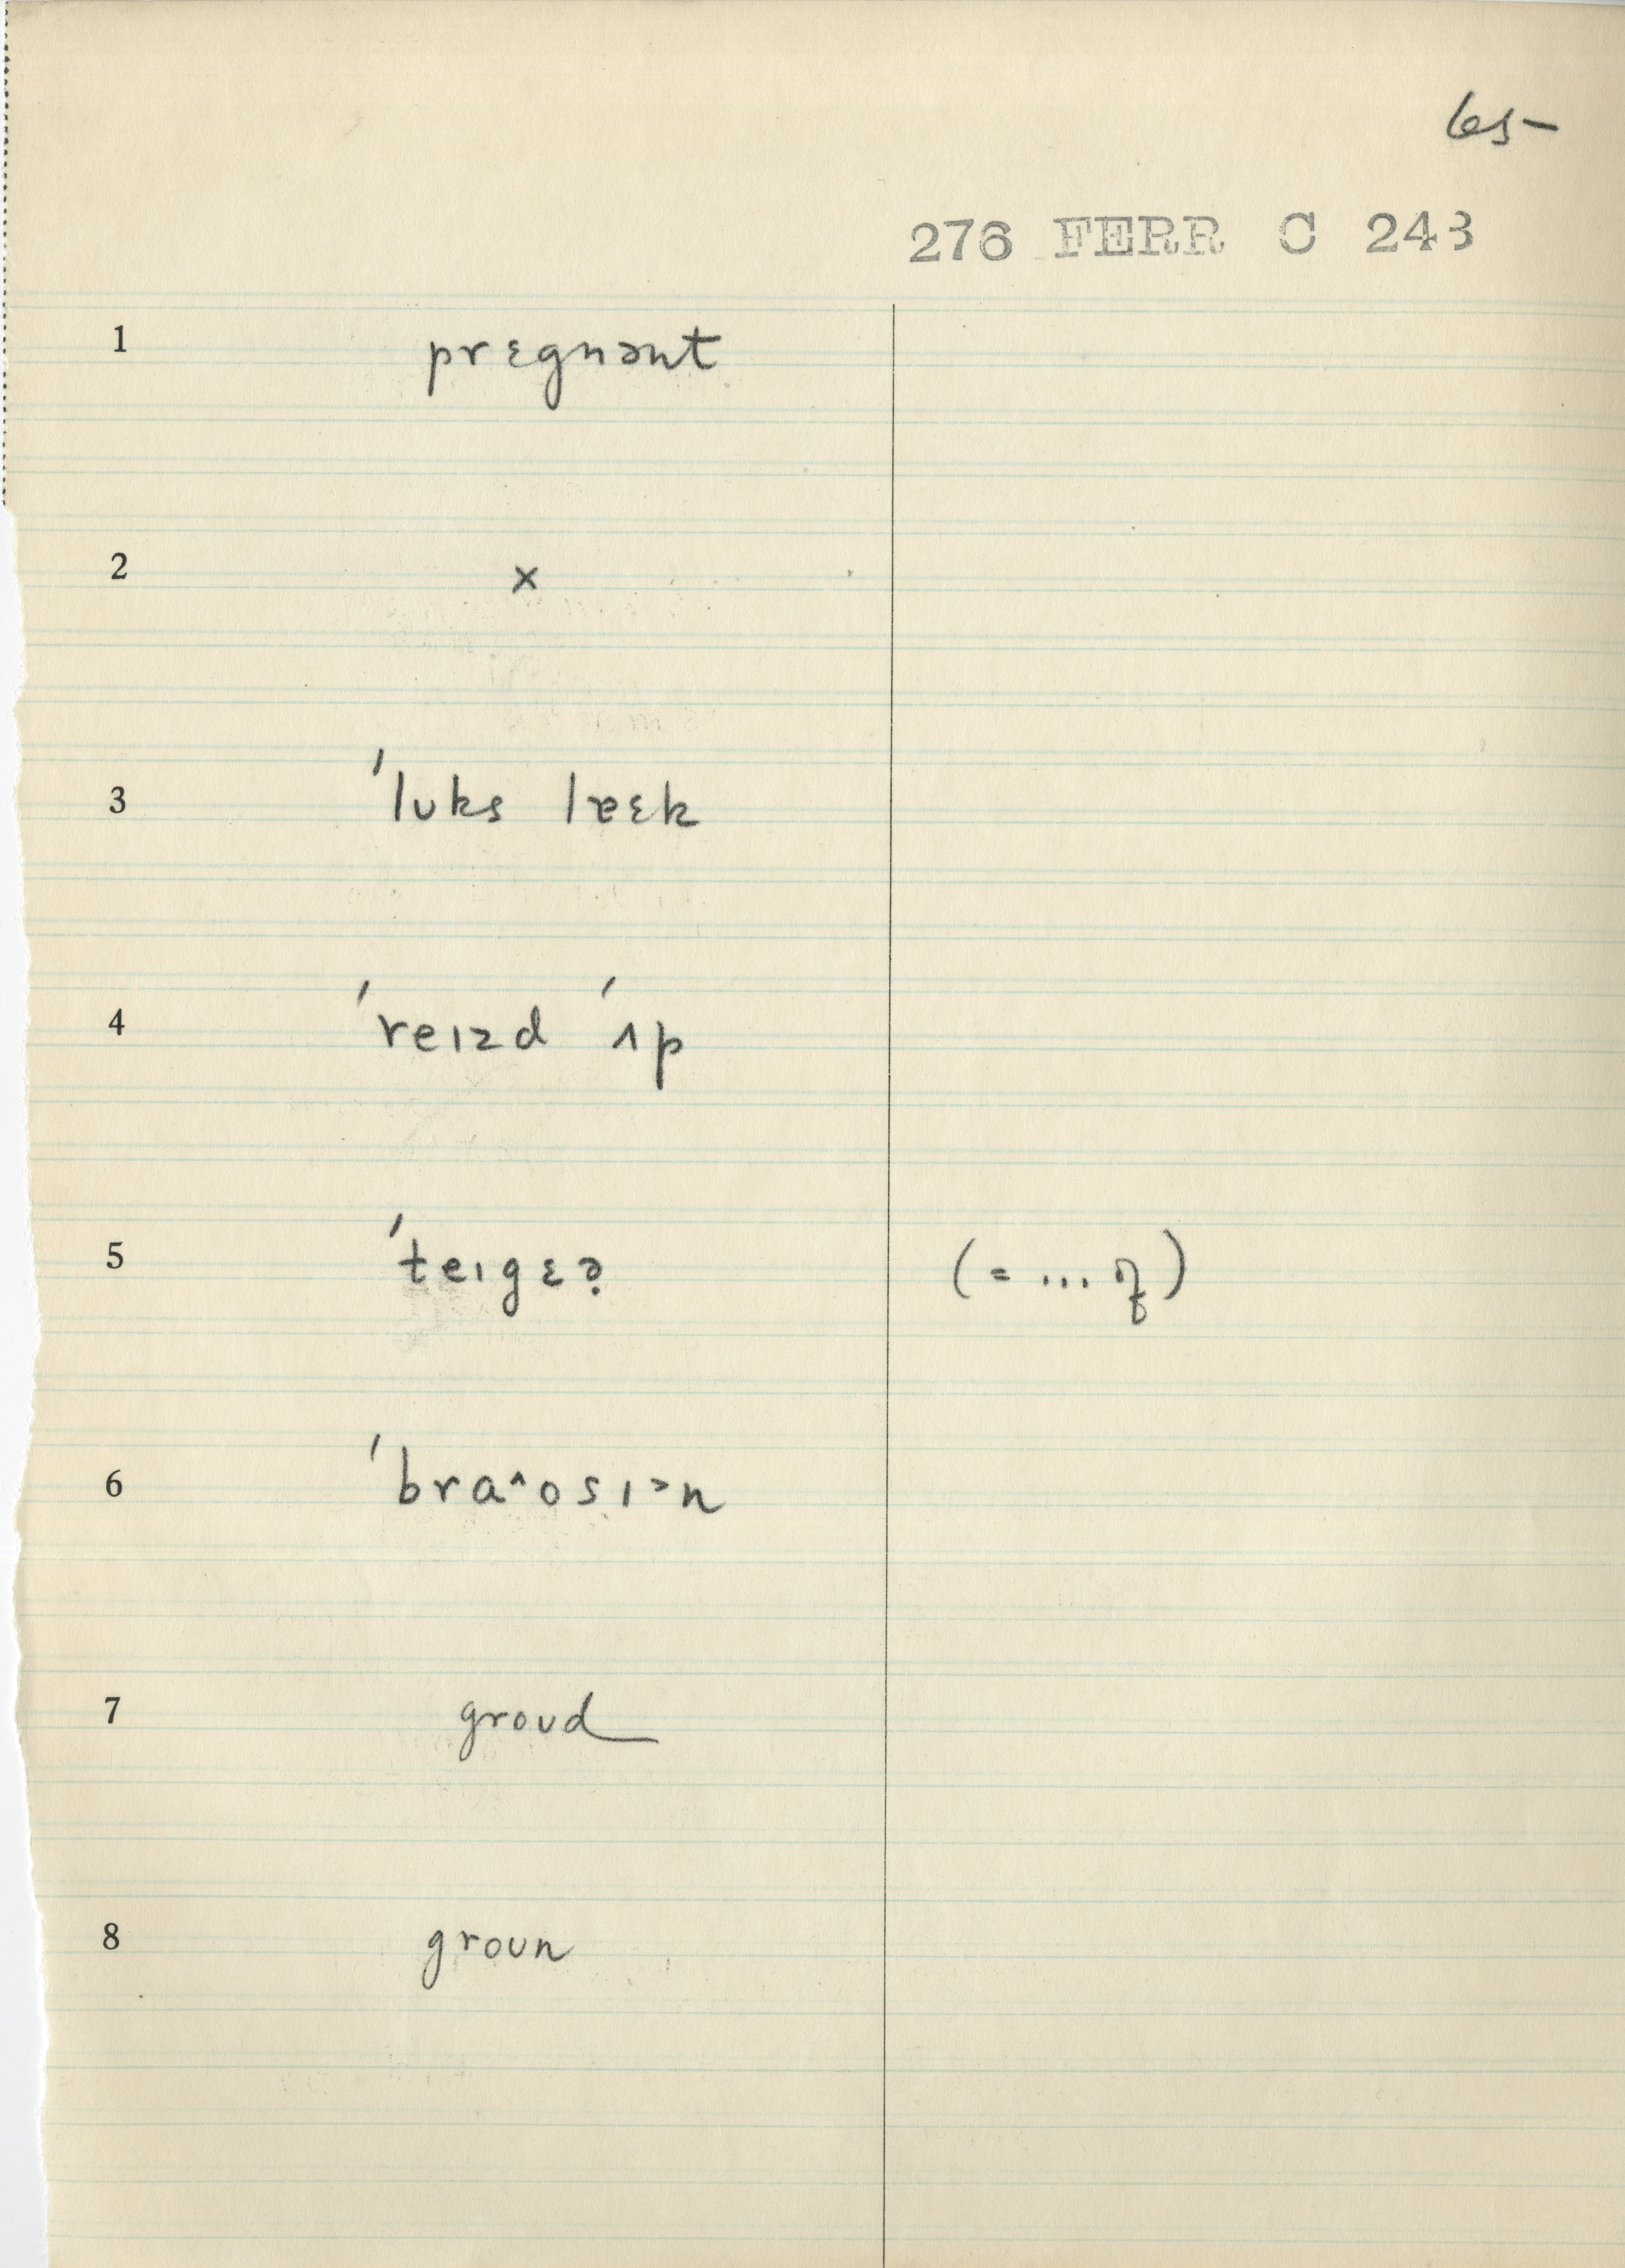 65-
276 FERR C 243
1 prɛgnənt
2 ×
3 ˈlʊks lɐɛk
4 ˈreɪzd ˈʌp
5 ˈteɪgɛə̣ (= ... )
6 ˈbra^osɪ>n
7 groʊd
8 groʊn